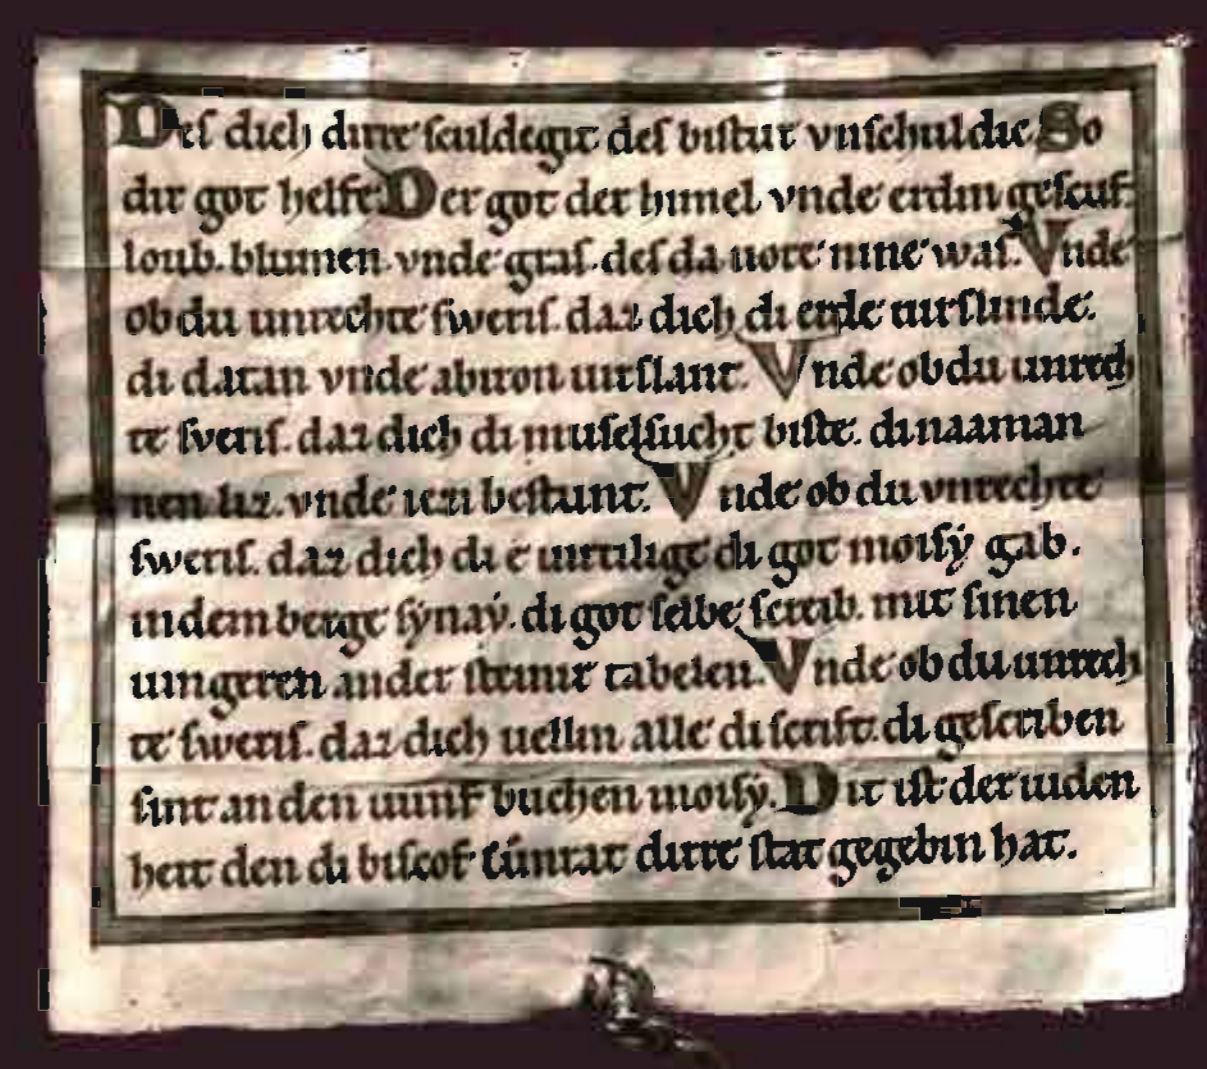 Deſ dich dirre ſculdegit deſ biſtur vnſchuldic So
dir got helfe Der got der himel vnde erdin geſcuf.
loub. blumen. vnde graſ. deſ da uore nine waſ. Vnde
ob du unrechte ſweriſ. daz dich di erde uirſlinde.
di datan vnde abiron uirſlant. Vnde ob du unrech
te ſveriſ. daz dich di muſelſucht biſte. di naaman
nen liz. vnde iezi beſtunt. Vnde ob du vnrechte
ſweriſ. daz dich di e uirtilige di got moiſẏ gab.
in dem berge ſẏnaẏ. di got ſelbe ſcreib. mit ſinen
uingeren an der ſteinir tabelen. Vnde ob du unrech
te ſweriſ. daz dich uellin alle di ſcrift. di geſcriben
ſint an den uunf buchen moiſẏ. Dit iſt der iuden
heit den di biſcof Cúnrat dirre ſtat gegebin hat.